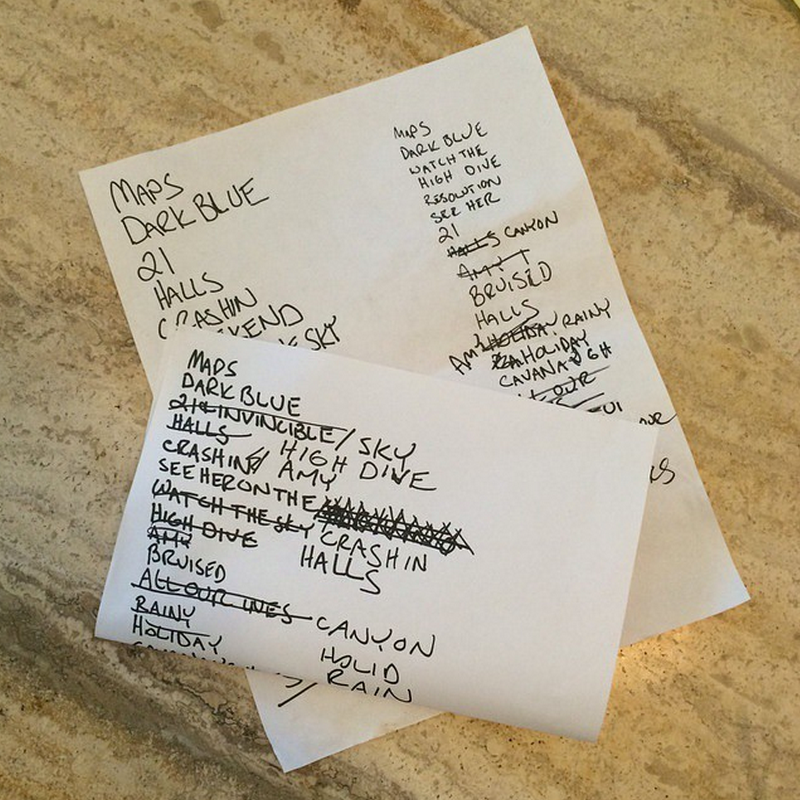 MAPS
DARK BLUE
21
HALLS
CRASHIN
KEND
SKY
MAPS
DARK BLUE
WATCH THE
HIGH DIVE
RESOLUTION
SEE HER
21
HALLS CANYON
AMY 1
BRUISED
HALLS
AMY HOLIDAY RAINY
HOLIDAY
CAVANAUGH
OUR
MAPS
DARK BLUE
21 INVINCIBLE / SKY
HALLS HIGH DIVE
CRASHIN / AMY
SEE HER ON THE
WATCH THE SKY CRASHIN
HIGH DIVE HALLS
AMY
BRUISED
ALL OUR LIVES CANYON
RAINY HOLID
HOLIDAY RAIN